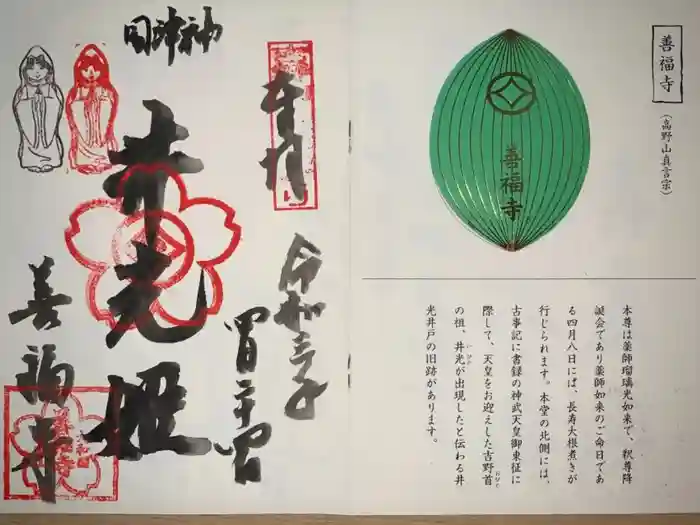 善福寺
(高野山真言宗)
善福寺
本尊は薬師瑠璃光如来で、釈尊降
誕会であり薬師如来のご命日であ
る四月八日には、長寿大根煮きが
行じられます。本堂の北側には、
古事記に書録の神武天皇御東征に
際して、天皇をお迎えした吉野首
おびと
の祖、井光が出現したと伝わる井
いひか
光井戸の旧跡があります。
奉拝
令和
井光姫
善福寺